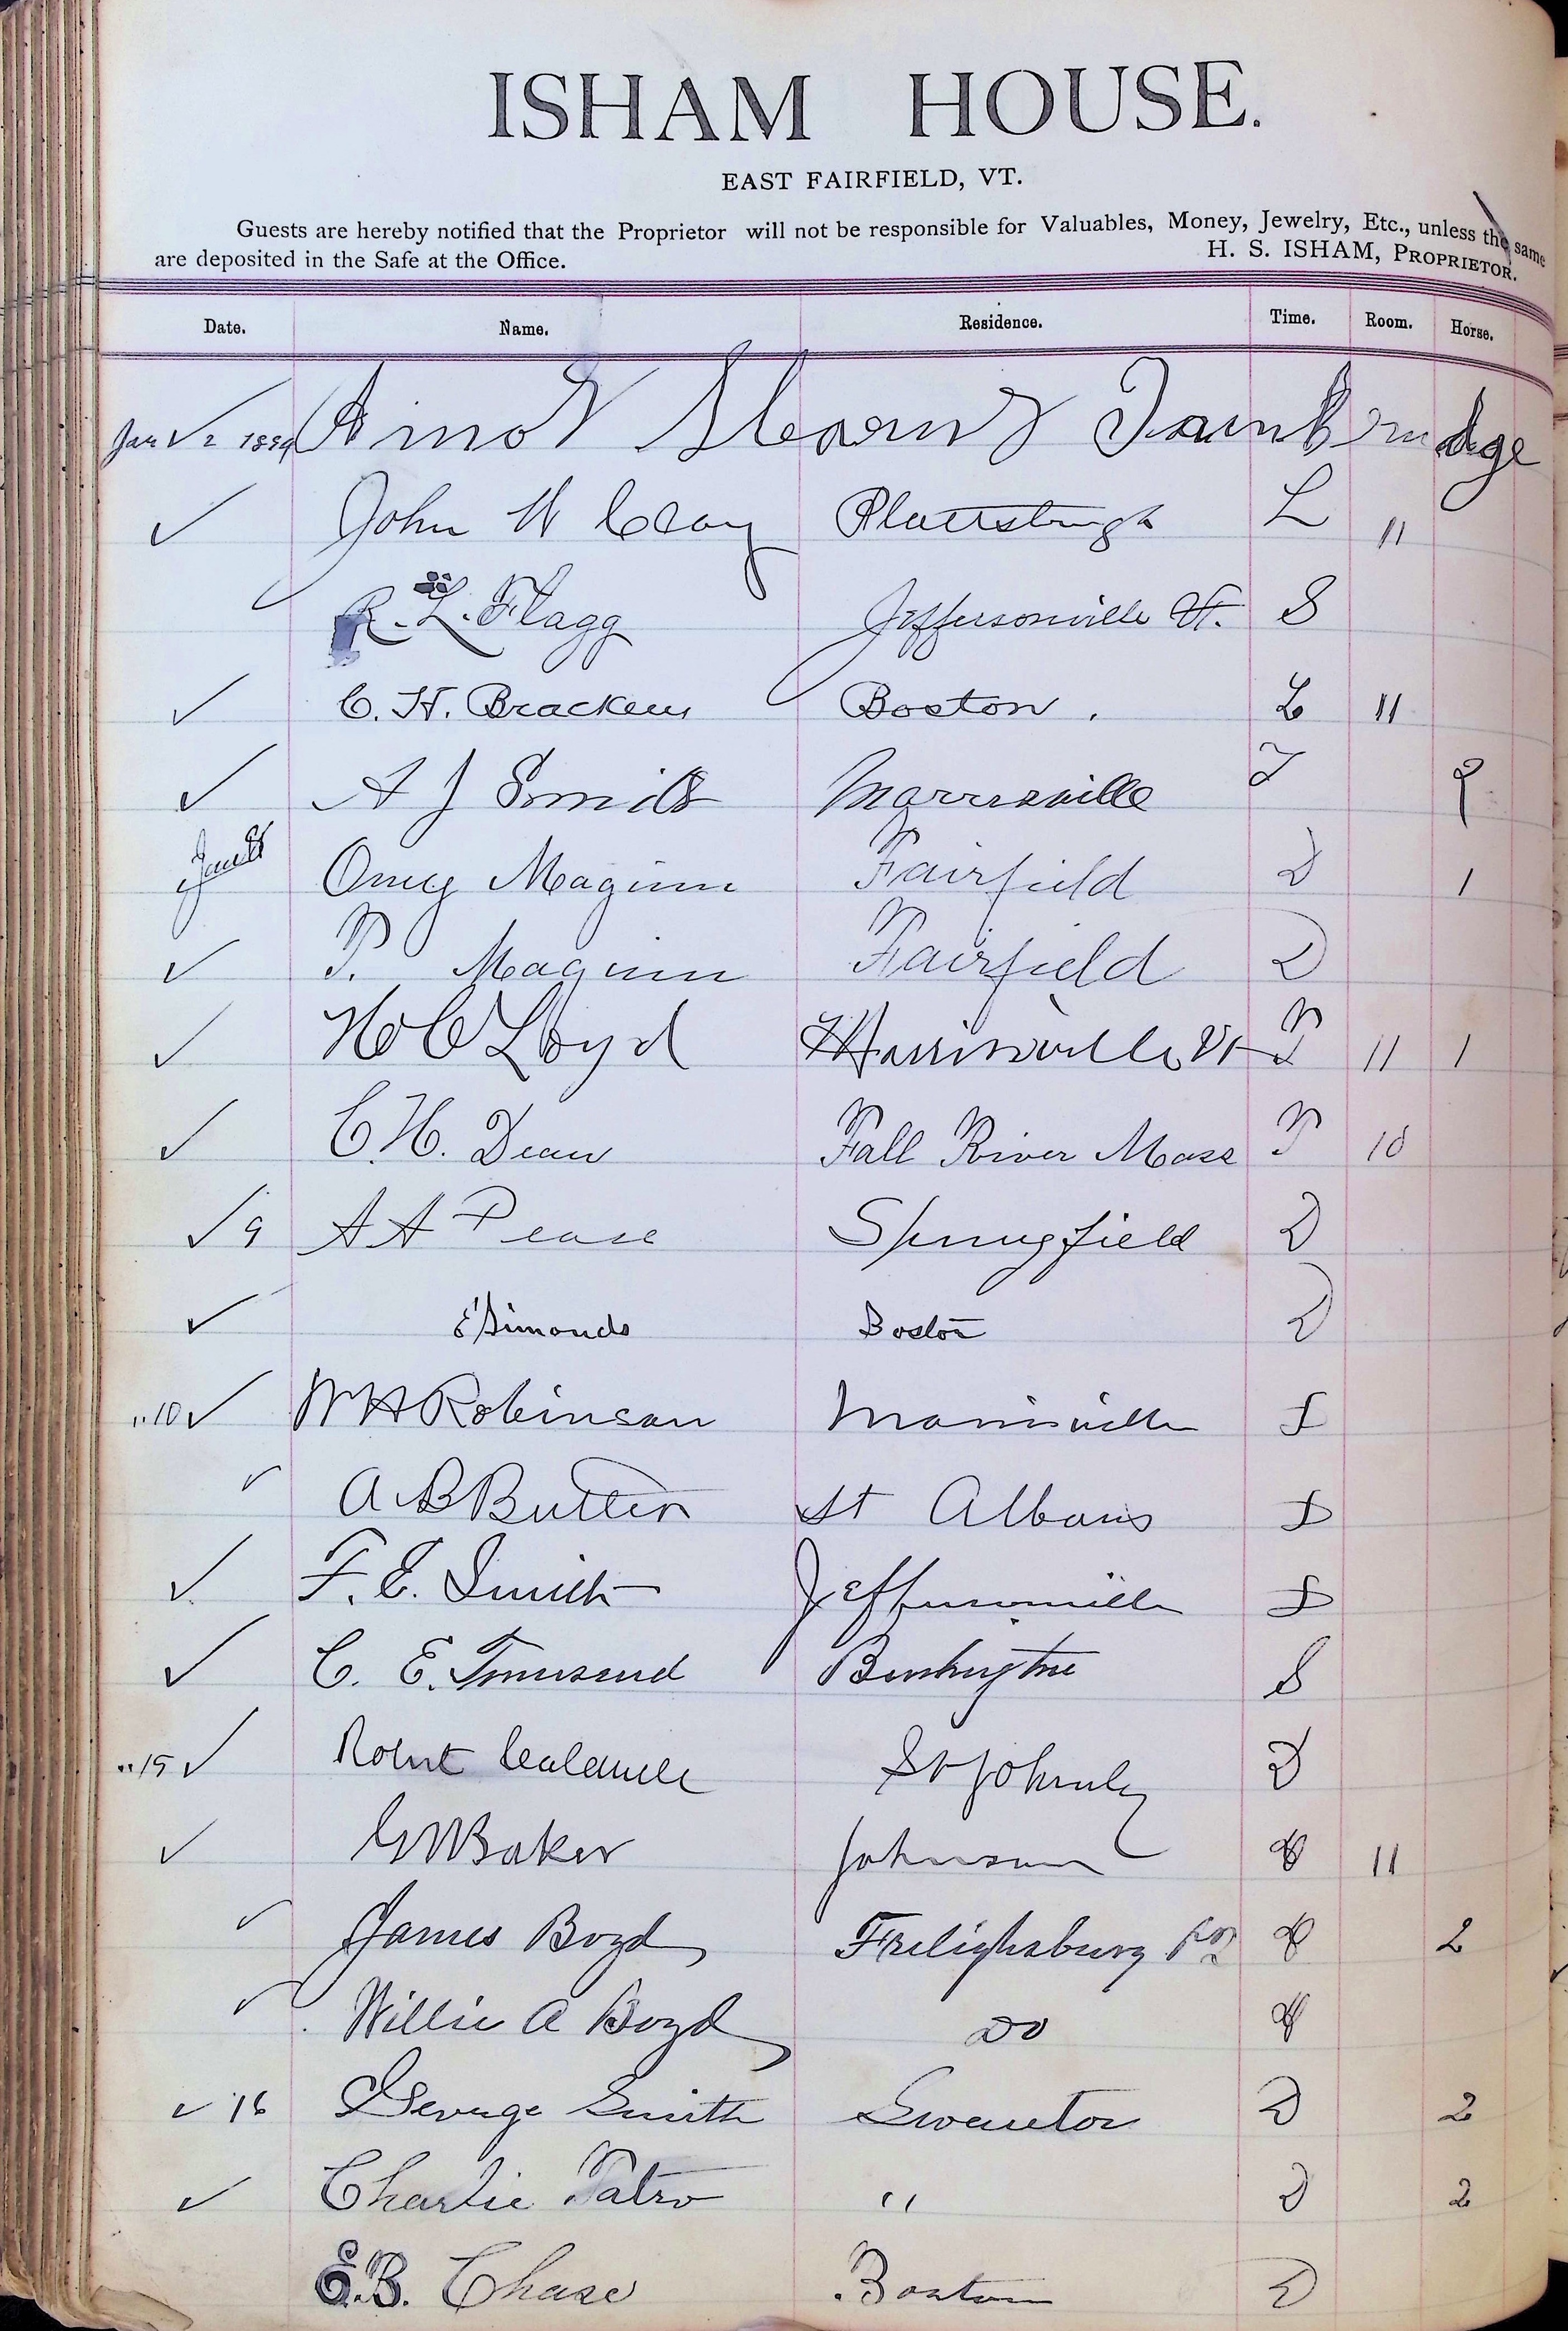 ISHAM HOUSE.
EAST FAIRFIELD, VT.
Guests are hereby notified that the Proprietor will not be responsible for Valuables, Money, Jewelry, Etc., unless the same
are deposited in the Safe at the Office.
H. S. ISHAM, PROPRIETOR.
Date. Name. Residence. Time. Room. Horse.
Jan 2
John W Plattsburgh L 11
R. L. Flagg Jeffersonville Vt. S
C. H. Bracken Boston. L 11
A J Smith Morrisville
Maginn Fairfield D 1
P. Maginn Fairfield D
Lloyd Morrisville Vt 11 1
C. H. Dean Fall River Mass 10
9 A A Pease Springfield D
E Simonds Boston D
"10 W H Robinson Morrisville
A B Butler St Albans
F. E. Smith Jeffersonville
C. E. Townsend Burlington S
"15 Robert Caldwell St Johnsbury D
Baker Johnson 11
James Boyd Frelighsburg PQ 2
Willie A Boyd Do
16 George Smith Swanton D 2
Charlie Patro " D 2
E.B. Chase Boston D